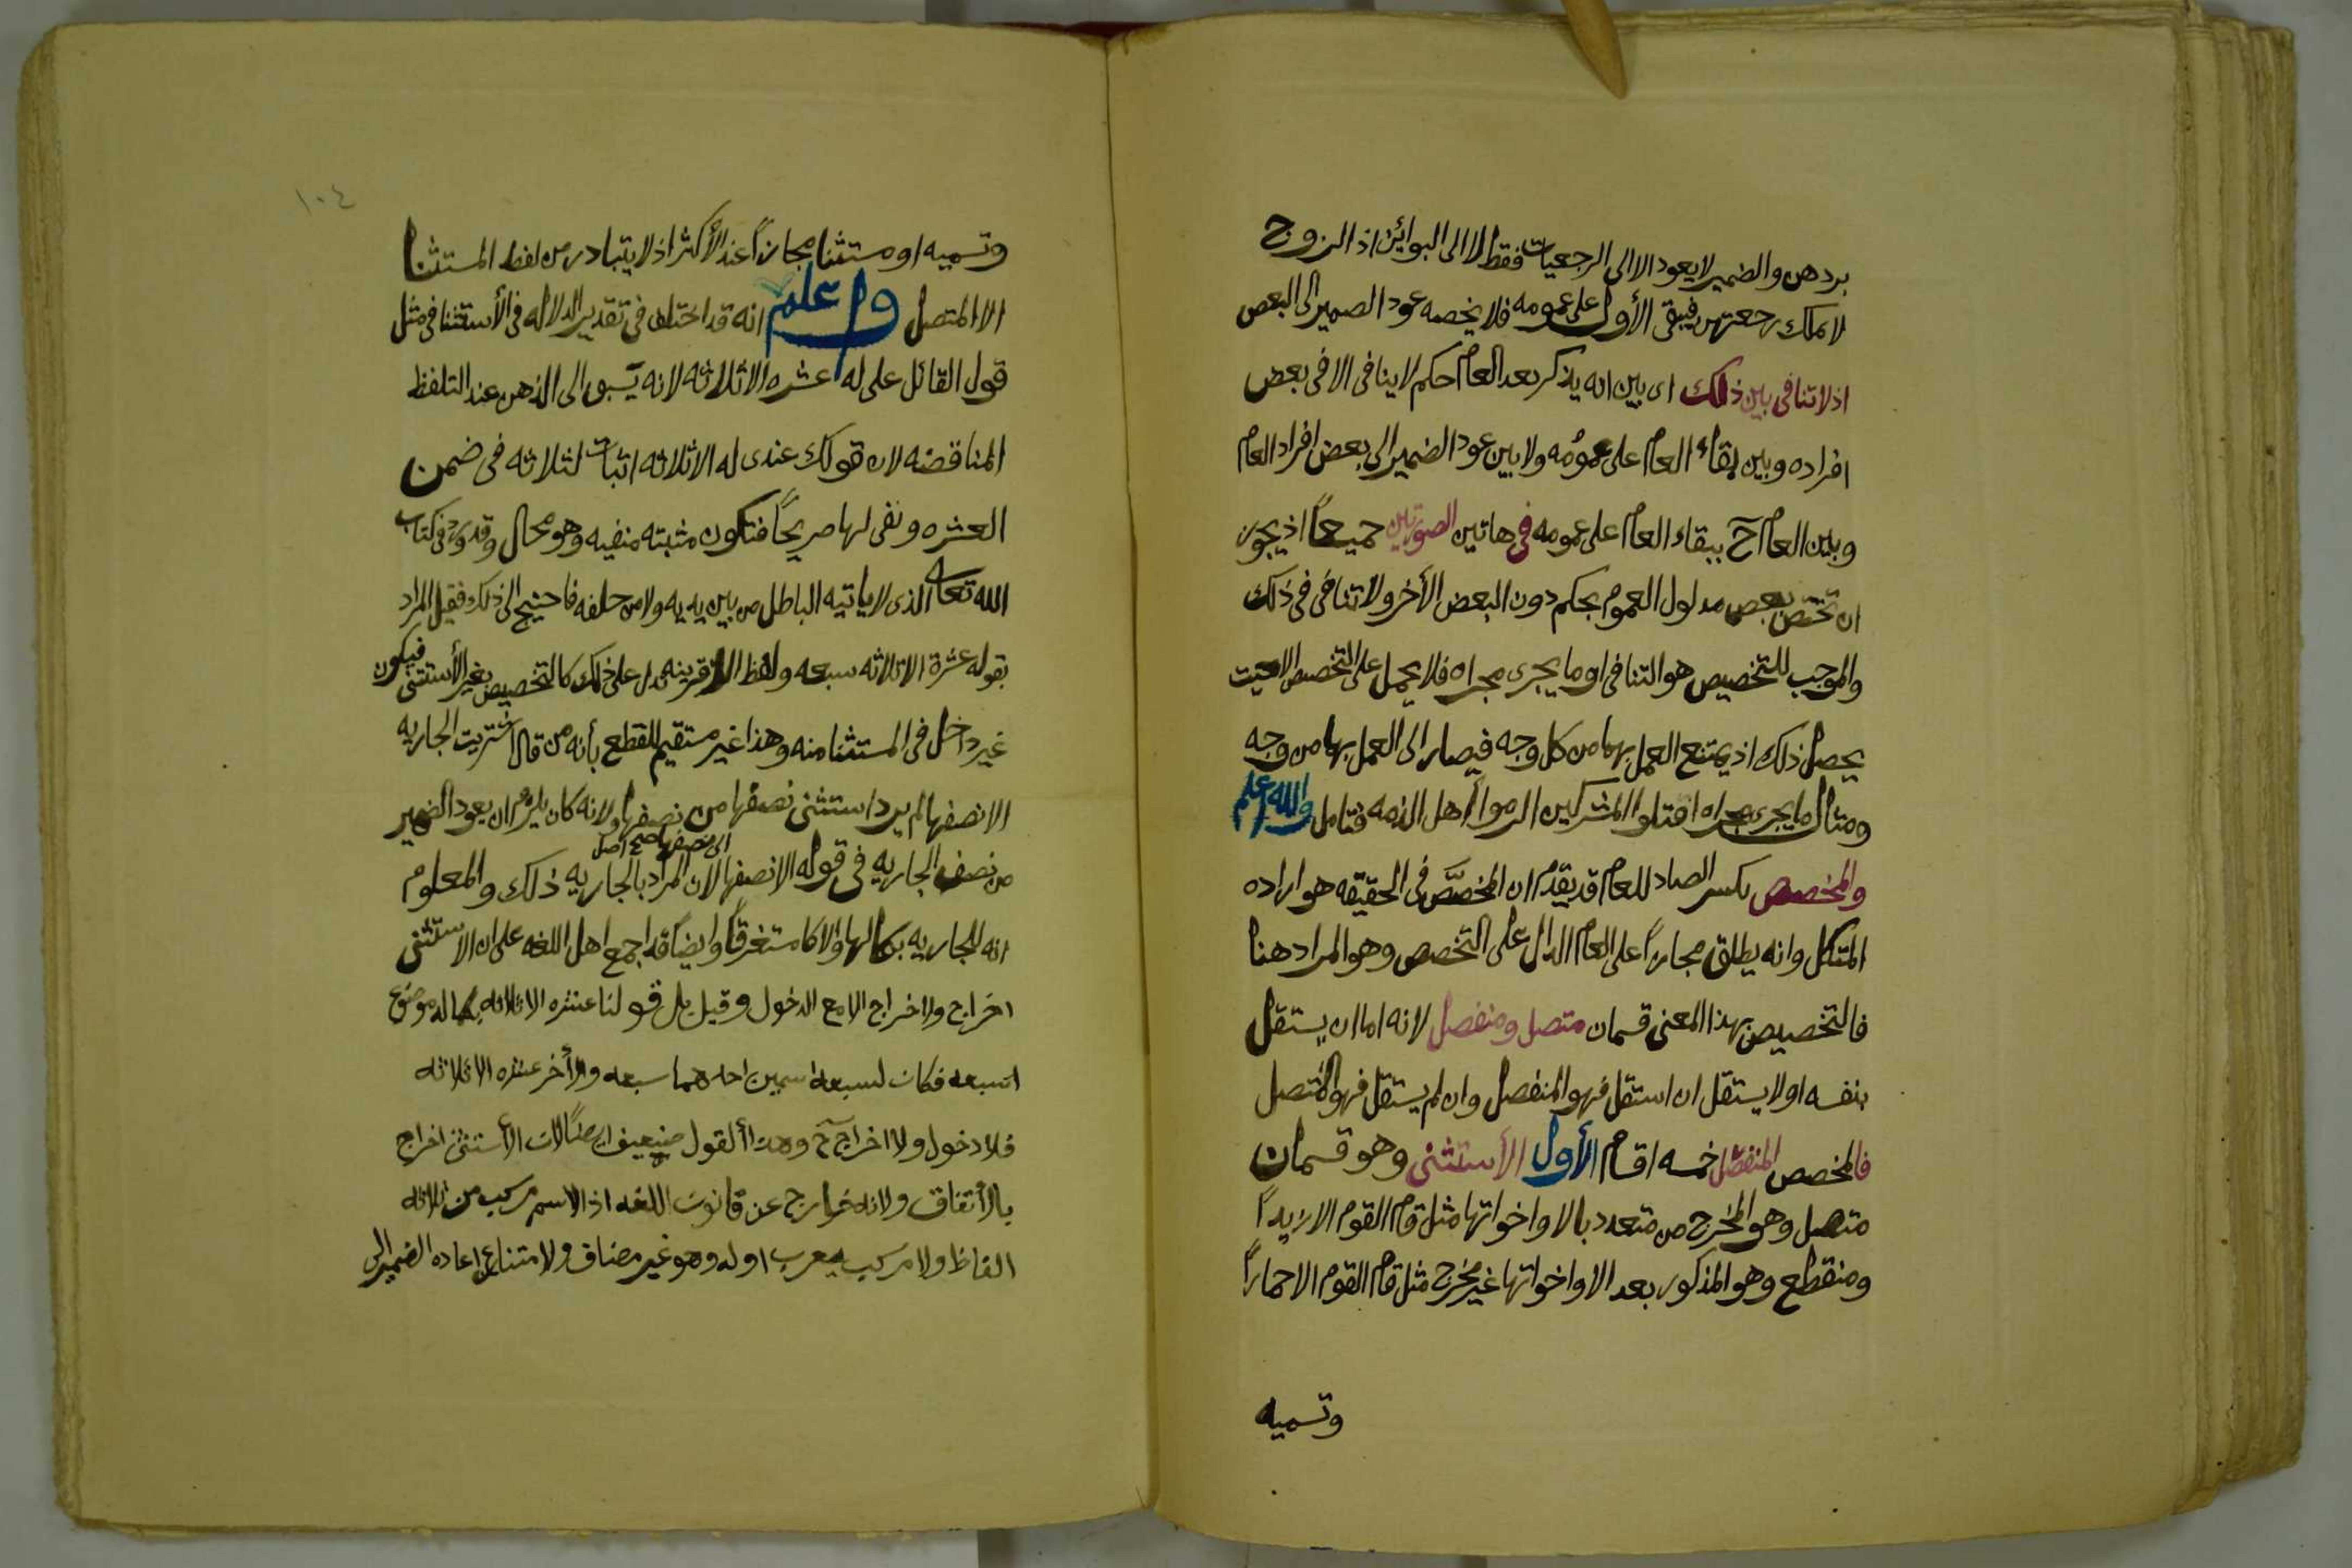 بردهن والضمير لا يعود الا الى الرجعيات فقط لا الى البوائن اذ الزوج
لا يملك رجعتهن فيبقى الأول على عمومه فلا يخصه عود الضمير الى البعض
اذ لا تنافى بين ذلك اى بين انه يذكر بعد العام حكم لا ينافى الا فى بعض
افراده وبين بقاء العام على عمومه ولا بين عود الضمير الى بعض افراد العام
وبين العام آح ببقاء العام على عمومه فى هاتين الصورتين جميعاً اذ يجوز
ان تختص بعض مدلول العموم بحكم دون البعض الأخر ولا تنافى فى ذلك
والموجب للتخصيص هو التنافى او ما يجرى مجراه فلا يحمل على التخصيص الا حيت
يحصل ذلك اذ يمتنع العمل بهما من كل وجه فيصار الى العمل بهما من وجه
ومثال ما يجرى مجراه اقتلوا المشركين الرموا أهل الذمه فتامل والله اعلم
والمخصص بكسر الصاد للعام قد يقدم ان المخصَّص فى الحقيقه هو اراده
المتكل وانه يطلق مجازاً على العام الدال على التخصص وهو المراد هنا
فالتخصيص بهذا المعنى قسمان متصل ومنفصل لانه اما ان يستقل
بنفسه او لا يستقل ان استقل فهو المنفصل وان لم يستقل فهو المتصل
فالمخصص المنفصل خمسه اقسام الأول الأستثنى وهو قسمان
متصل وهو المخرج من متعدد بالا واخواتها مثل قام القوم الا زيداً
ومنقطع وهو المذكور بعد الا واخواتها غير مخرج مثل قام القوم الا حماراً
وتسميه
١٠٤
وتسميه او مستثنا مجازاً عند الأكثر اذ لا يتبادر من لفظ المستثنا
الا المتصل واعلم انه قد اختلف فى تقدير الدلاله فى الأستثنا فى مثل
قول القائل على له عشره الا ثلاثه لانه يسبق الى الذهن عند التلفظ
المناقضه لان قولك عندى له الا ثلاثه اثبات لثلاثه فى ضمن
العشره ونفى لها صريحاً فتكون مثبته منفيه وهو محال وقد ورد فى كتاب
الله تعالى الذى لا ياتيه الباطل من بين يديه ولا من خلفه فاحتيج الى ذلك فقيل المراد
بقوله عشرة الا ثلاثه سبعه ولفظ الا قرينه تدل على ذلك كالتخصيص بغير الأستثنى فيكون
غير داخل فى المستثنا منه وهذا غير مستقيم للقطع بأنه من قال اشتريت الجاريه
الا نصفها لم يرد استثنى نصفها من نصفها ولانه كان يلزم ان يعود الضمير
الى نصفها صح اصل
من نصف الجاريه فى قوله الا نصفها لان المراد بالجاريه ذلك والمعلوم
انه للجاريه بكمالها والا كا مستغرقاً وايضاً قد اجمع اهل اللغه على ان الاستثنى
اخراج ولا اخراج الا مع الدخول وقيل بل قولنا عشره الا ثلاثه بكماله موضوع
لسبعه فكان لسبعه اسمين احدهما سبعه والأخر عشره الا ثلاثه
فلا دخول ولا اخراج آح وهذا ألقول ضعيف ايضاً لان الأستثنى اخراج
بالأتفاق ولانه خارج عن قانون اللغه اذ الاسم مركب من ثلاثه
الفاظ ولا مركب يعرب اوله وهو غير مضاف ولامتناع اعاده الضمير الى